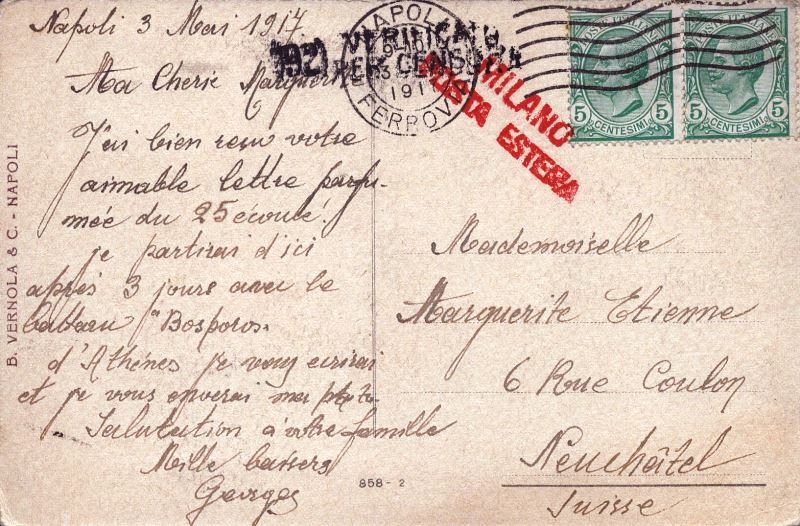 Napoli 3 Mai 1917
Ma Cherie Marguerite
J'ai bien reçu votre
aimable lettre parfu-
mée du 25 écoulé.
je partirai d'ici
après 3 jours avec le
"Bosporos"
d'Athénes je vous ecrirai
et je vous enverai ma photo
Salutation a votre famille
Mille baisers
Georges
B. VERNOLA & C. - NAPOLI
858 - 2
VERIFICATO
PER CENSURA
NAPOLI
FERROVIA
MILANO
POSTA ESTERA
5 CENTESIMI 5
5 CENTESIMI 5
Mademoiselle
Marguerite Etienne
6 Rue Coulon
Neuchâtel
Suisse